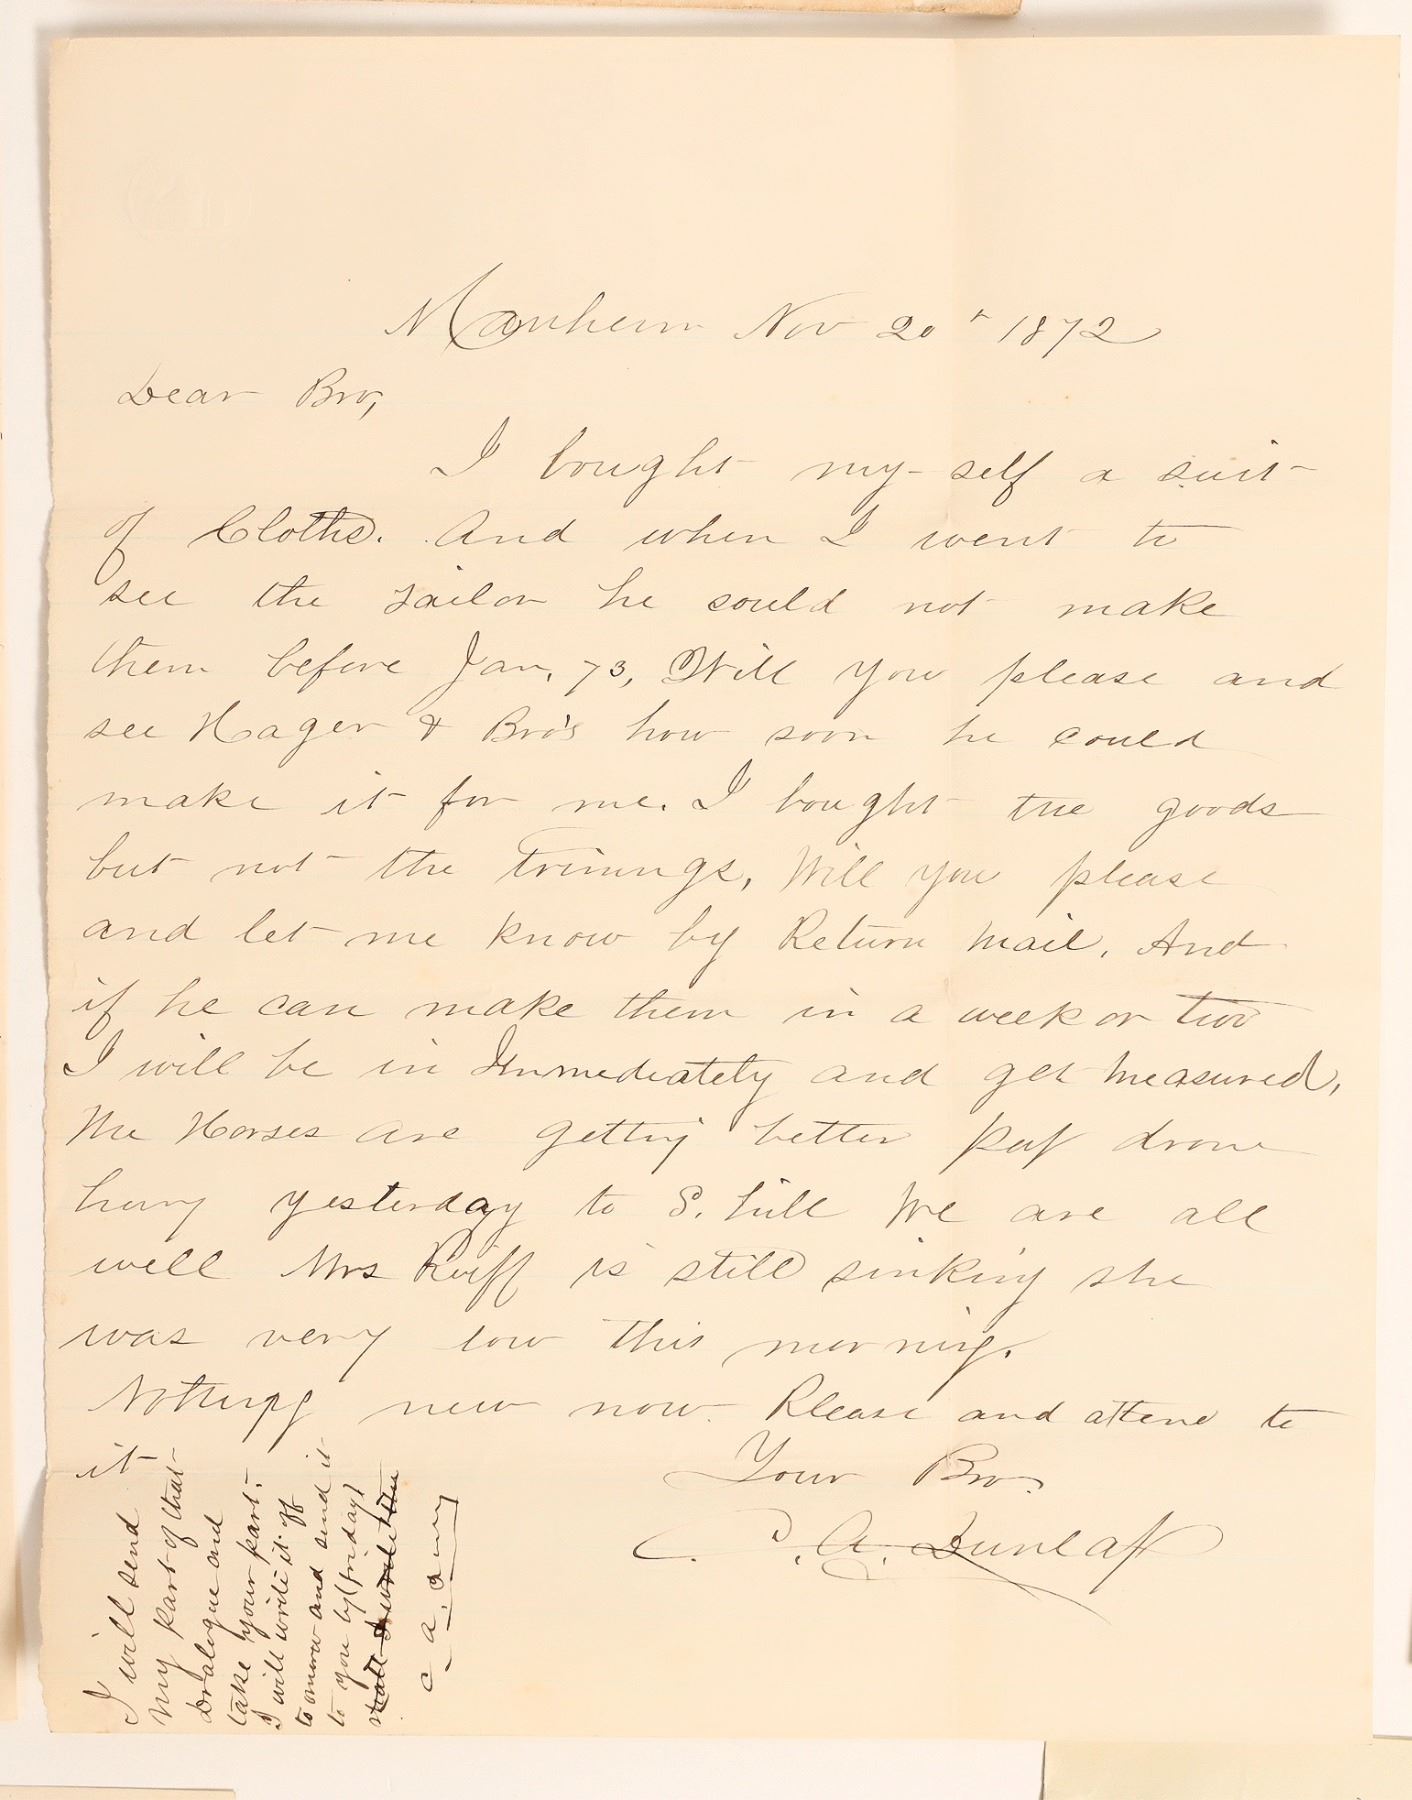 Manheim Nov 20" 1872
Dear Bro,
I bought my-self a suit
of Cloths. And when I went to
see the Tailor he could not make
them before Jan, 73, Will you please and
see Hager & Bro's how soon he could
make it for me. I bought the goods
but not the Trimings, Will you please
and let me know by Return Mail. And
if he can make them in a week or two
I will be in Immediately and get Measured,
The Horses are getting better drove
yesterday to S. hill We are all
well Mrs Reiff is still sinking she
was very low this morning.
Nothing new now. Please and attend to
it
Your Bro.
C. A. Dunlap
I will send
My part of that
Dialogue and
take your part.
I will write it off
tomorrow and send it
to you by (friday)